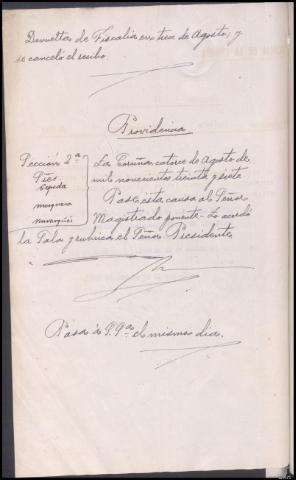 Devuelta de Fiscalia en trece de Agosto, y
se canceló el recibo.
Providencia
Sección 2ª
Sres
Cepeda
mosquera
navarques
La Coruña, catorce de Agosto de
mil novecientos treinta y siete
Pase esta causa al Señor
Magistrado ponente. Lo acordó
la Sala y rubrica el Señor Presidente.
Pasa á el mismo día.